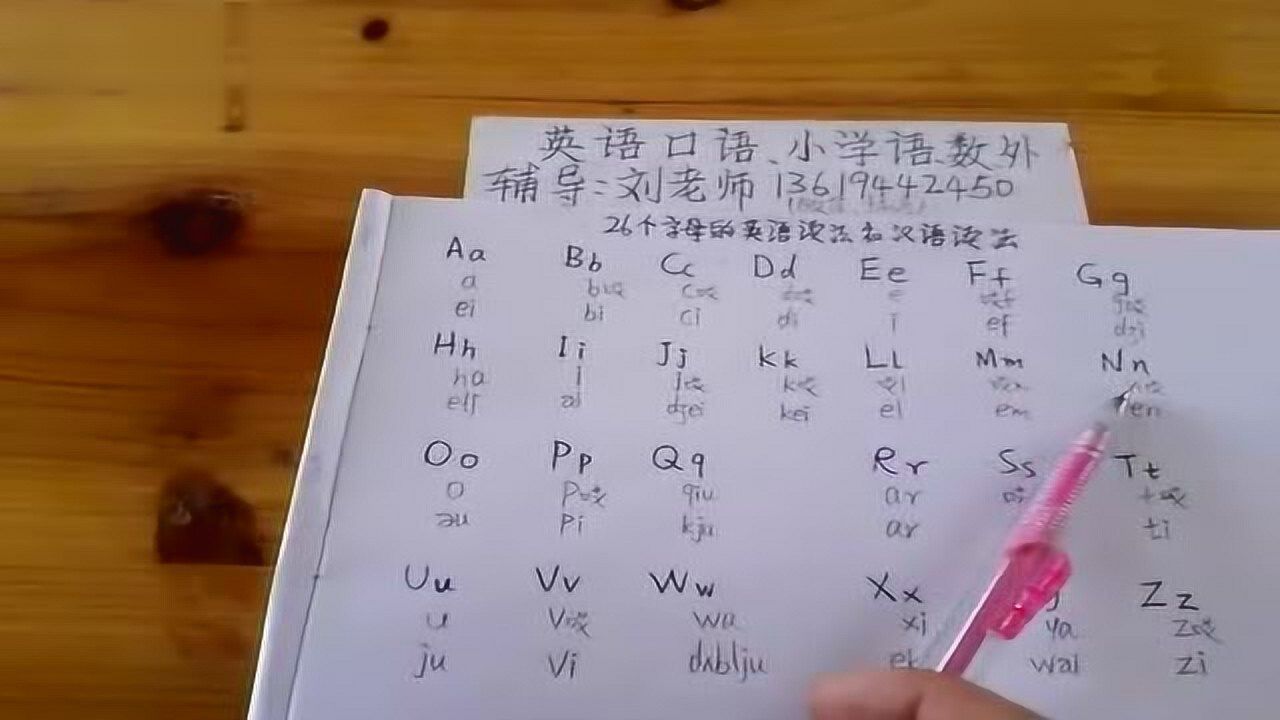 英语口语、小学语数外
辅导:刘老师 13619442450
26个字母的英语读法和汉语读法
Aa Bb Cc Dd Ee Ff Gg
a b哎 c哎 d哎 e 哎f g哎
ei bi ci di i ef dʒi
Hh Ii Jj Kk Ll Mm Nn
ha i j哎 k哎 哎l
ai dʒei kei el em en
Oo Pp Qq Rr Ss Tt
o p哎 qiu ar t哎
əu pi kju ar ti
Uu Vv Ww Xx Zz
u v哎 wa xi ya z哎
ju vi dʌblju wai zi